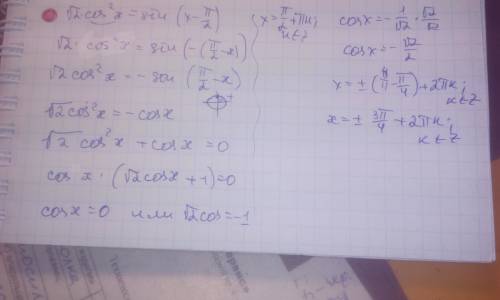 √2cos²x = sin (x - π/2)
√2 · cos²x = sin (-(π/2 - x))
√2 cos²x = - sin (π/2 - x)
√2cos²x = - cosx
√2 cos²x + cosx = 0
cos x · (√2cosx + 1) = 0
cosx = 0 или √2cos = -1
x = π/2 + πк;
к ∈ Z
cosx = - 1/√2 · √2/√2
cosx = - √2/2
x = ± (π - π/4) + 2πк;
к ∈ Z
x = ± 3π/4 + 2πк;
к ∈ Z